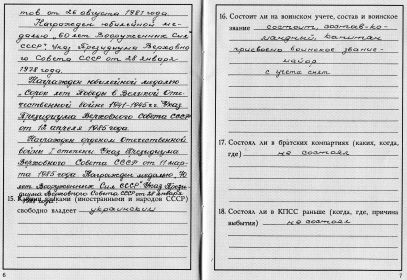 тов от 26 августа 1981 года.
Награжден юбилейной ме-
далью „60 лет Вооруженных Сил
СССР". Указ Президиума Верховно-
го Совета СССР от 28 января
1978 года.
Награжден юбилейной медалью
„Сорок лет Победы в Великой Оте-
чественной войне 1941-1945гг. Указ
Президиума Верховного Совета СССР
от 12 апреля 1985 года.
Награжден орденом Отечественной
войны степени Указ Президиума
Верховного Совета СССР от 11 мар-
та 1985 года. Награжден медалью „70
лет Вооруженных Сил СССР" Указ Прези-
диума Верховного Совета СССР от 28 января
15. Какими языками (иностранными и народов СССР)
свободно владеет украинским
6
16. Состоит ли на воинском учете, состав и воинское
звание состоит, состав-ко-
мандный, капитан
присвоено воинское звание-
майор
с учета снят
17. Состоял ли в братских компартиях (каких, когда,
где) не состоял
18. Состоял ли в КПСС раньше (когда, где, причина
выбытия) не состоял
7